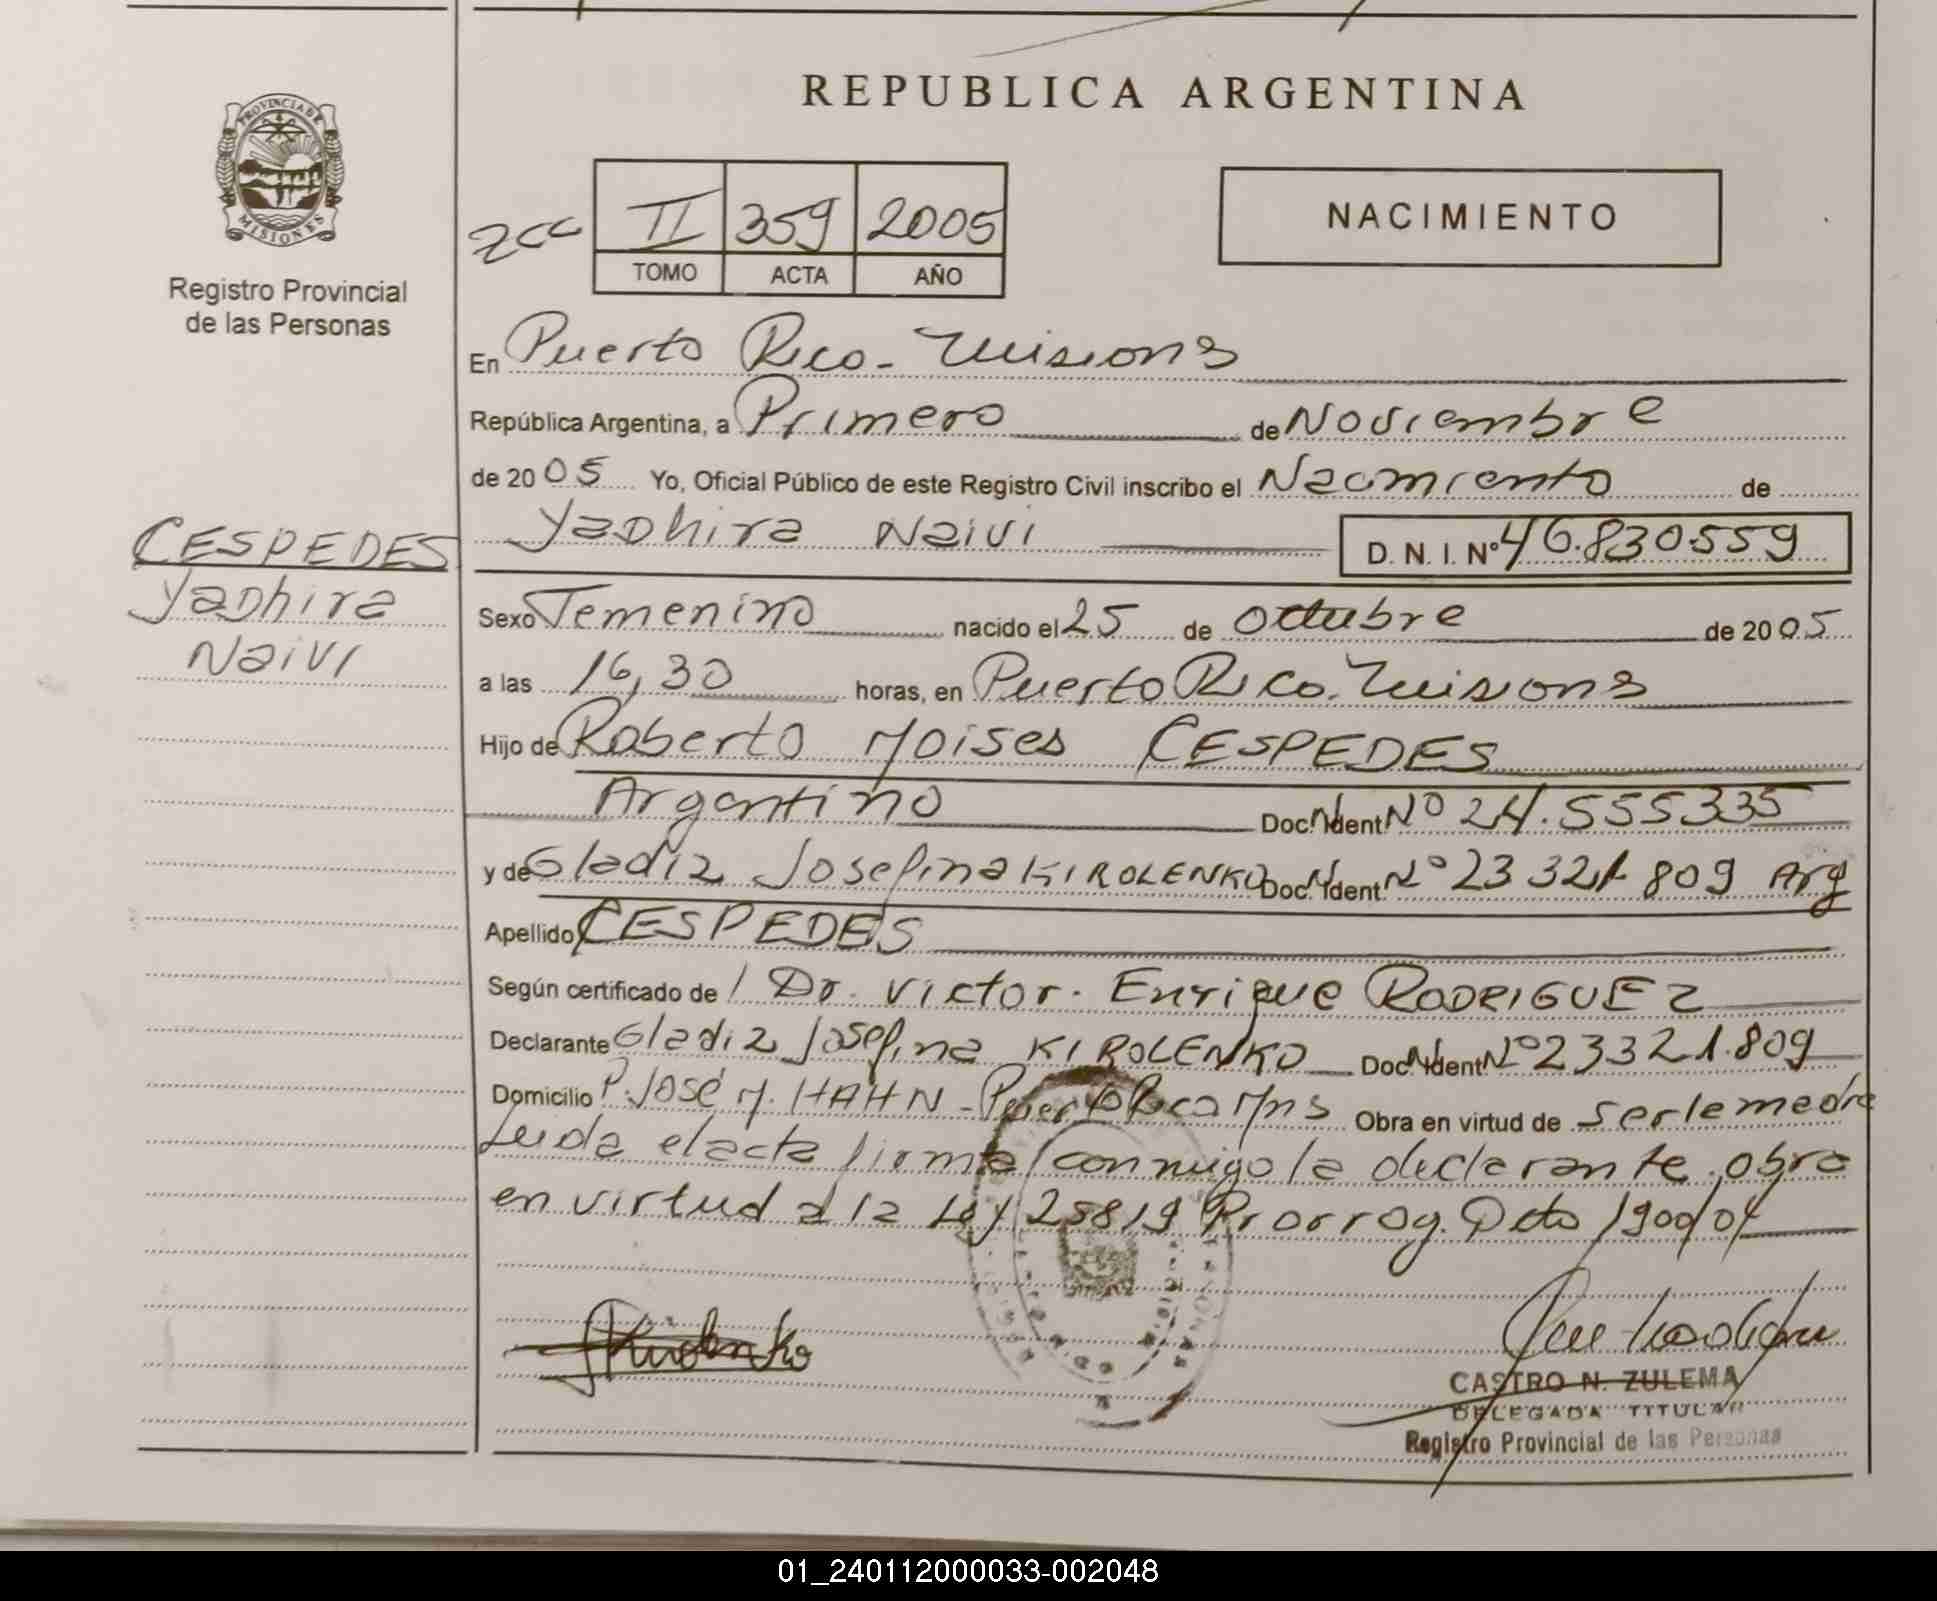 REPUBLICA ARGENTINA
PROVINCIA DE
MISIONES
Registro Provincial
de las Personas
II 359 2005
TOMO ACTA AÑO
NACIMIENTO
En Puerto Rico - Misiones
República Argentina, a Primero de Noviembre
de 2005 Yo, Oficial Público de este Registro Civil inscribo el Nacimiento de
Yadhira Naivi D. N. I. N° 46.830.559
CESPEDES
Yadhira
Naivi
Sexo Femenino nacido el 25 de Octubre de 2005
a las 16,30 horas, en Puerto Rico. Misiones
Hijo de Roberto Moises CESPEDES
Argentino Doc. Ident. N° 24.555335
y de Gladiz Josefina KIROLENKO Doc. Ident. N° 23 321 809 Arg
Apellido CESPEDES
Según certificado de Dr. Victor. Enrique RODRIGUEZ
Declarante Gladiz Josefina KIROLENKO Doc. Ident N° 23321.809
Domicilio P. José M. HAHN - Puerto Rico Mns Obra en virtud de ser la madre
Leida el acta firma conmigo la declarante, obra
en virtud a la Ley 25819 Prorrog. Dcto 1900/04
Kirolenko
CASTRO N. ZULEMA
DELEGADA TITULAR
Registro Provincial de las Personas
01_240112000033-002048